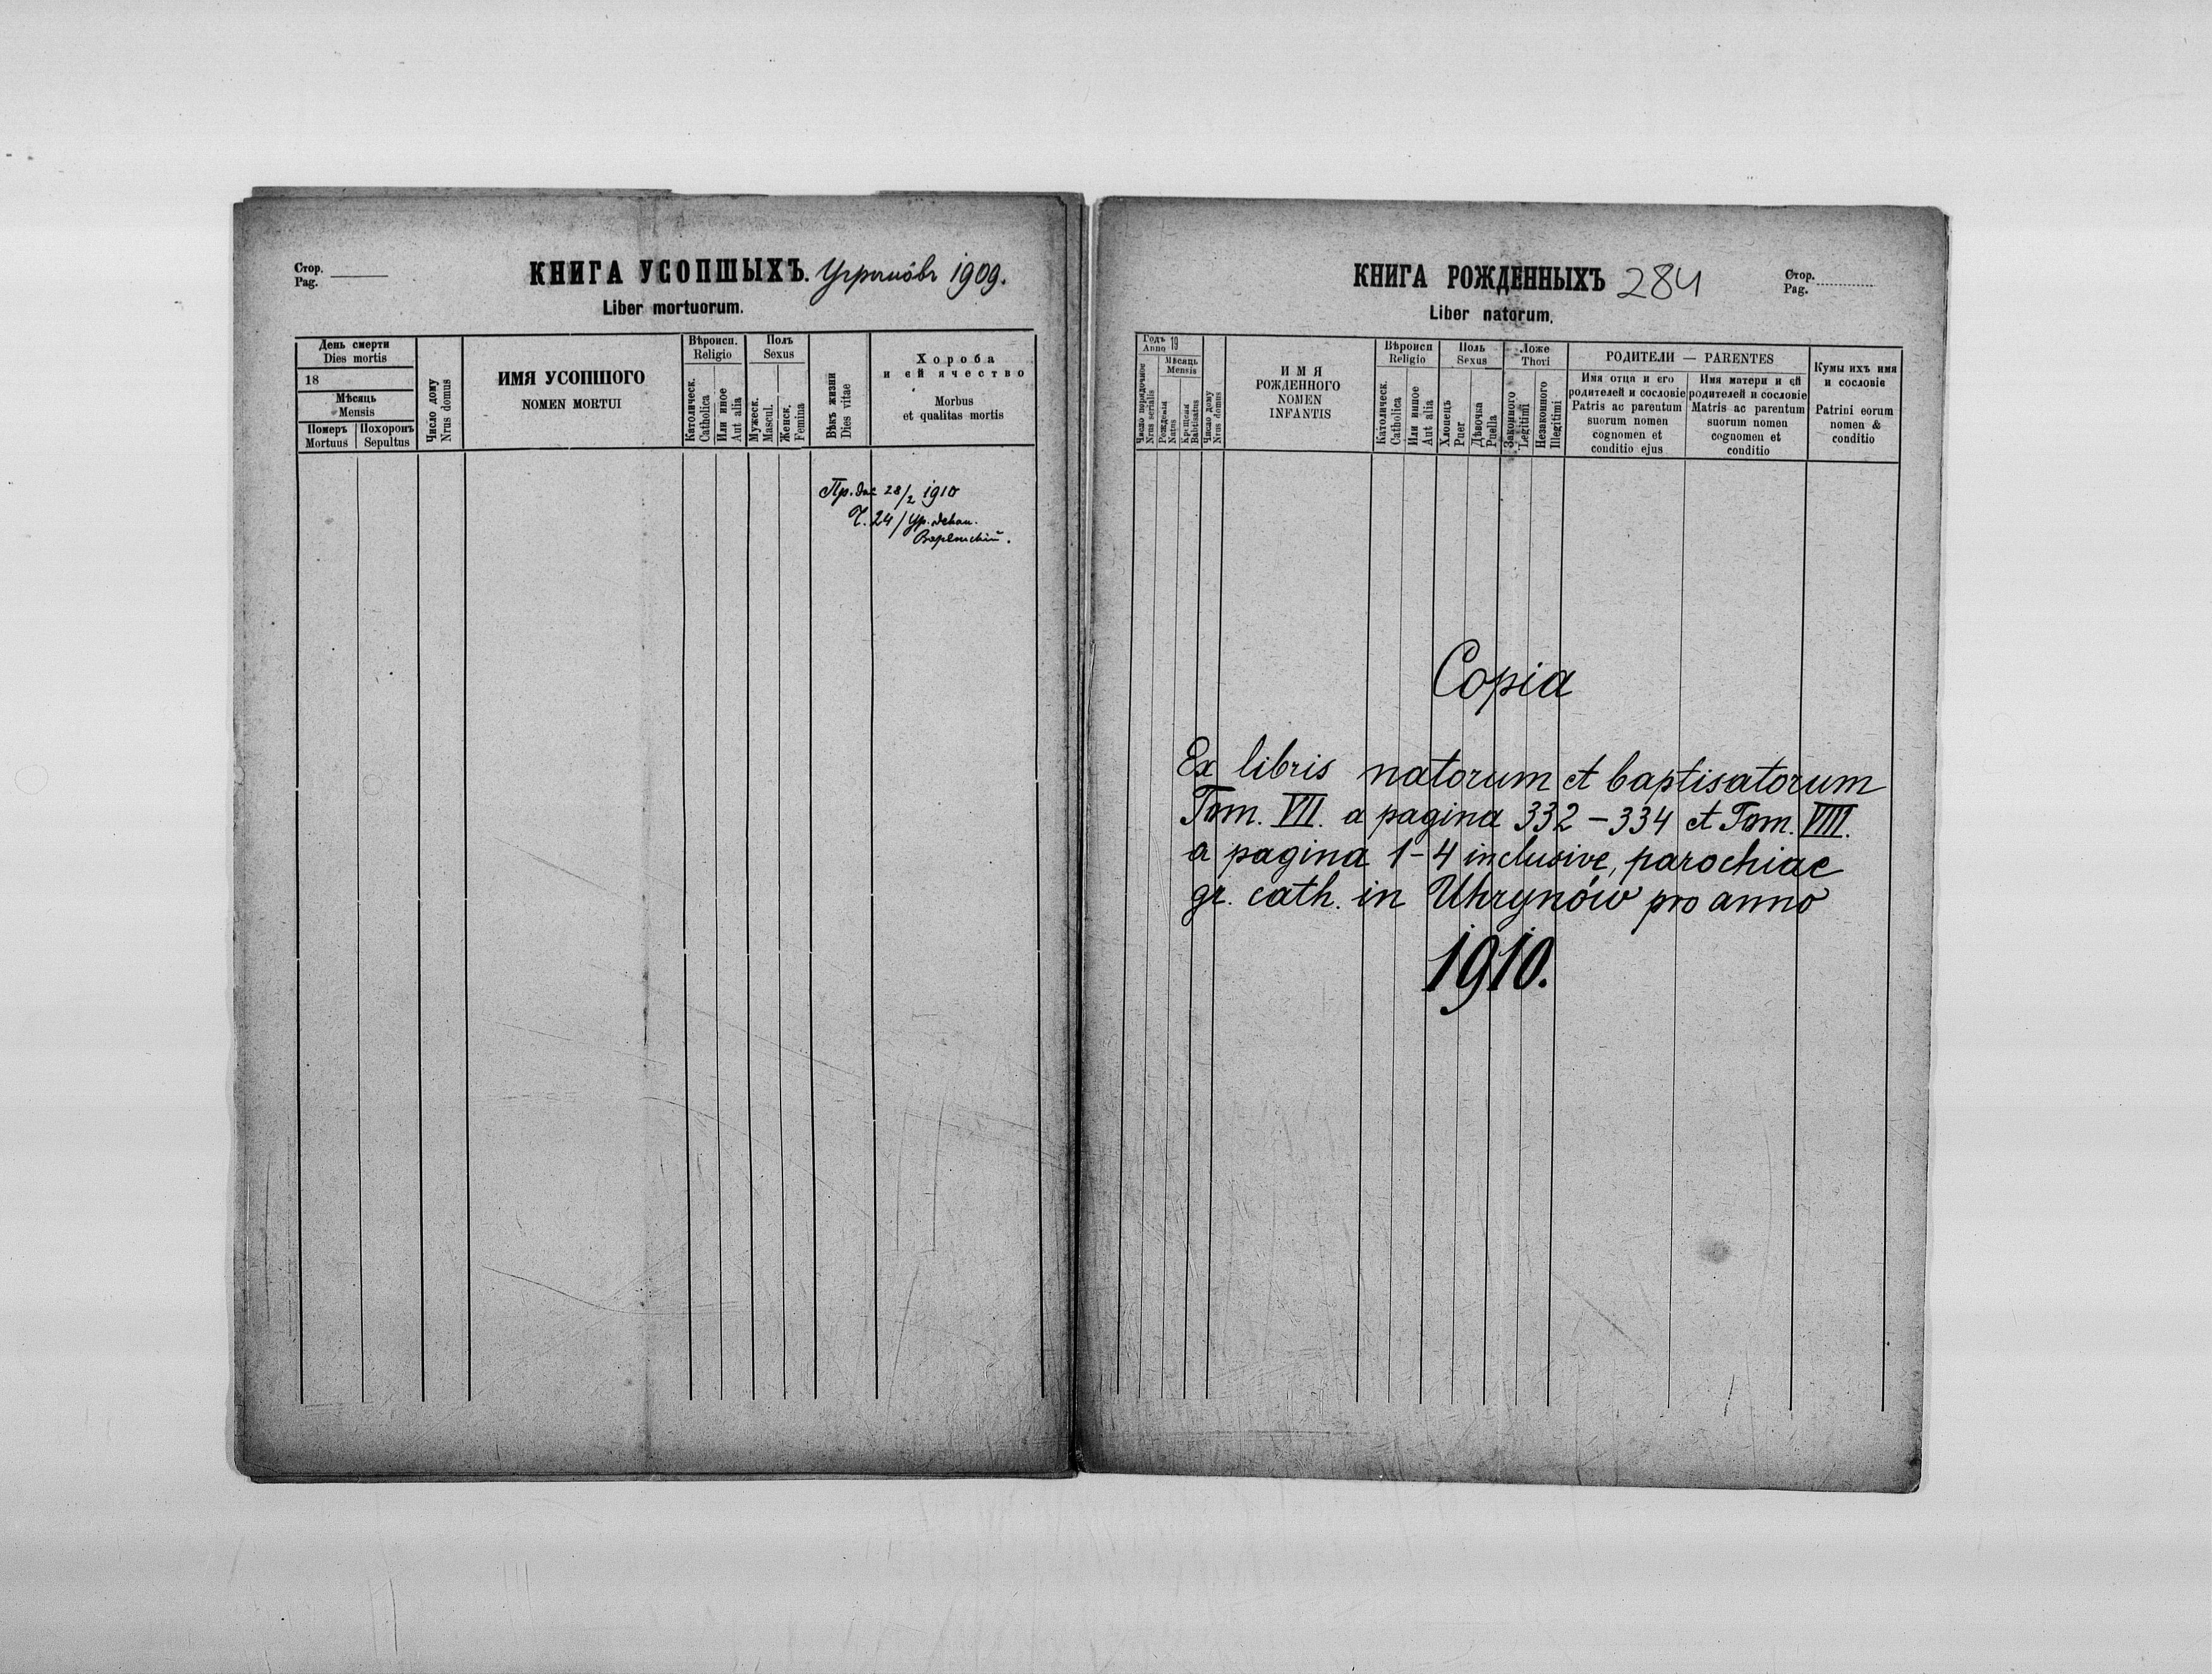 Стор.
Pag.
КНИГА УСОПШЫХЪ. Угриновъ 1909.
Liber mortuorum.
День смерти
Dies mortis
18
Мѣсяць
Mensis
Померъ
Mortuus
Похоронъ
Sepultus
Число дому
Nrus domus
ИМЯ УСОПШОГО
NOMEN MORTUI
Вѣроисп.
Religio
Католическ.
Catholica
Или иное
Aut alia
Полъ
Sexus
Мужеск.
Mascul.
Женск.
Femina
Вѣкъ жизни
Dies vitae
Хороба
и ей ячество
Morbus
et qualitas mortis
28/2 1910
Ч. 24/ Ур. декан.
КНИГА РОЖДЕННЫХЪ 284
Liber natorum.
Стор.
Pag.
Годъ
Anno 19
Число порядочное
Nrus serialis
Мѣсяць
Mensis
Рожденія
Natus
Крещенія
Babtisatus
Число дому
Nrus domus
ИМЯ
РОЖДЕННОГО
NOMEN
INFANTIS
Вѣроисп
Religio
Католическ.
Catholica
Или инное
Aut alia
Полъ
Sexus
Хлопець
Puer
Дѣвочка
Puella
Ложе
Thori
Законного
Legitimi
Незаконного
Illegitimi
РОДИТЕЛИ — PARENTES
Имя отца и его
родителей и сословіе
Patris ac parentum
suorum nomen
cognomen et
conditio ejus
Имя матери и ей
родителей и сословіе
Matris ac parentum
suorum nomen
cognomen et
conditio
Кумы ихъ имя
и сословіе
Patrini eorum
nomen &
conditio
Copia
Ex libris natorum et baptisatorum
Tom. VII. a pagina 332 – 334 et Tom. VIII.
a pagina 1–4 inclusive, parochiae
gr. cath. in Uhrynów pro anno
1910.